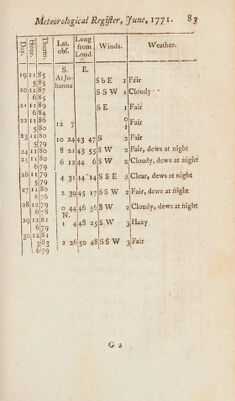 Meteorological Register, June, 1771. 83
Day. Hour. Therm. Lat. obs. Long from Lond. Winds. Weather.
S. E.
19 11 85 At Jo-
5 85 hanna S b E 1 Fair
20 11 87 S S W 1 Cloudy
6 85
21 11 89 S E 1 Fair
6 84
22 11 86 12 7 0
5 80 1 Fair
23 11 80 10 24 43 47 S 2 Fair
5 79
24 11 80 8 21 43 55 S W 2 Fair, dews at night
6 79
25 11 80 6 12 44 6 S W 2 Cloudy, dews at night
6 79
26 11 79 4 31 44 14 S S E 2 Clear, dews at night
5 79
27 11 80 2 39 45 17 S S W 2 Fair, dews at night
6 76
28 12 79 0 44 46 56 S W 2 Cloudy, dews at night
6 78 N.
29 12 81 1 4 48 25 S W 3 Hazy
6 79
30 12 81
3 83 2 26 50 48 S S W 3 Fair
6 79
G 2